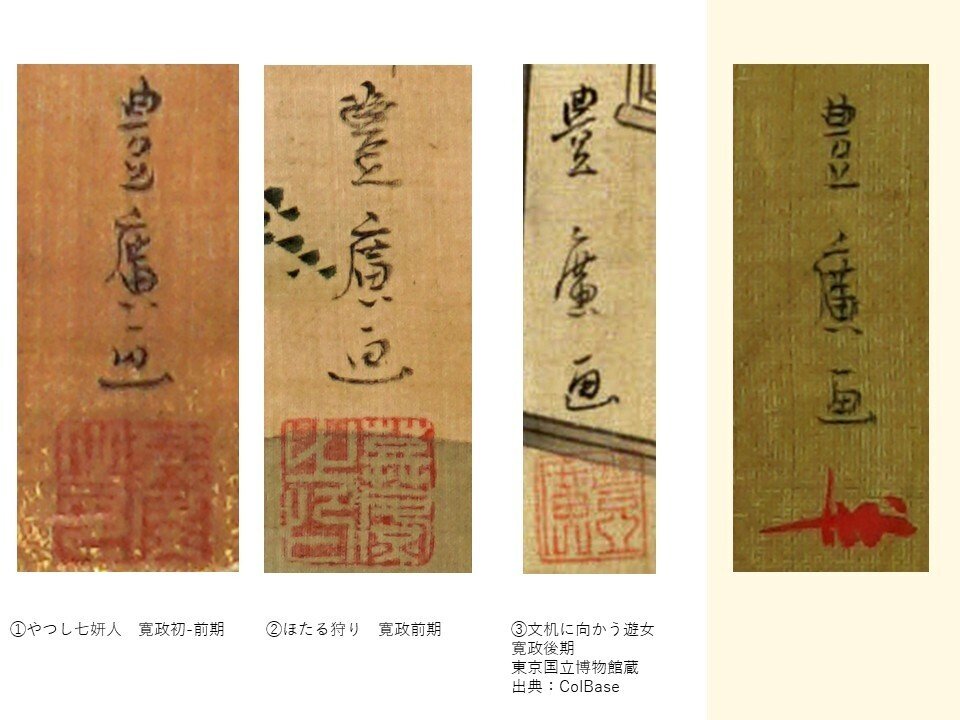 豊廣画
豊廣画
豊廣画
豊廣画
①やつし七妍人　寛政初-前期
②ほたる狩り　寛政前期
③文机に向かう遊女
寛政後期
東京国立博物館蔵
出典：ColBase